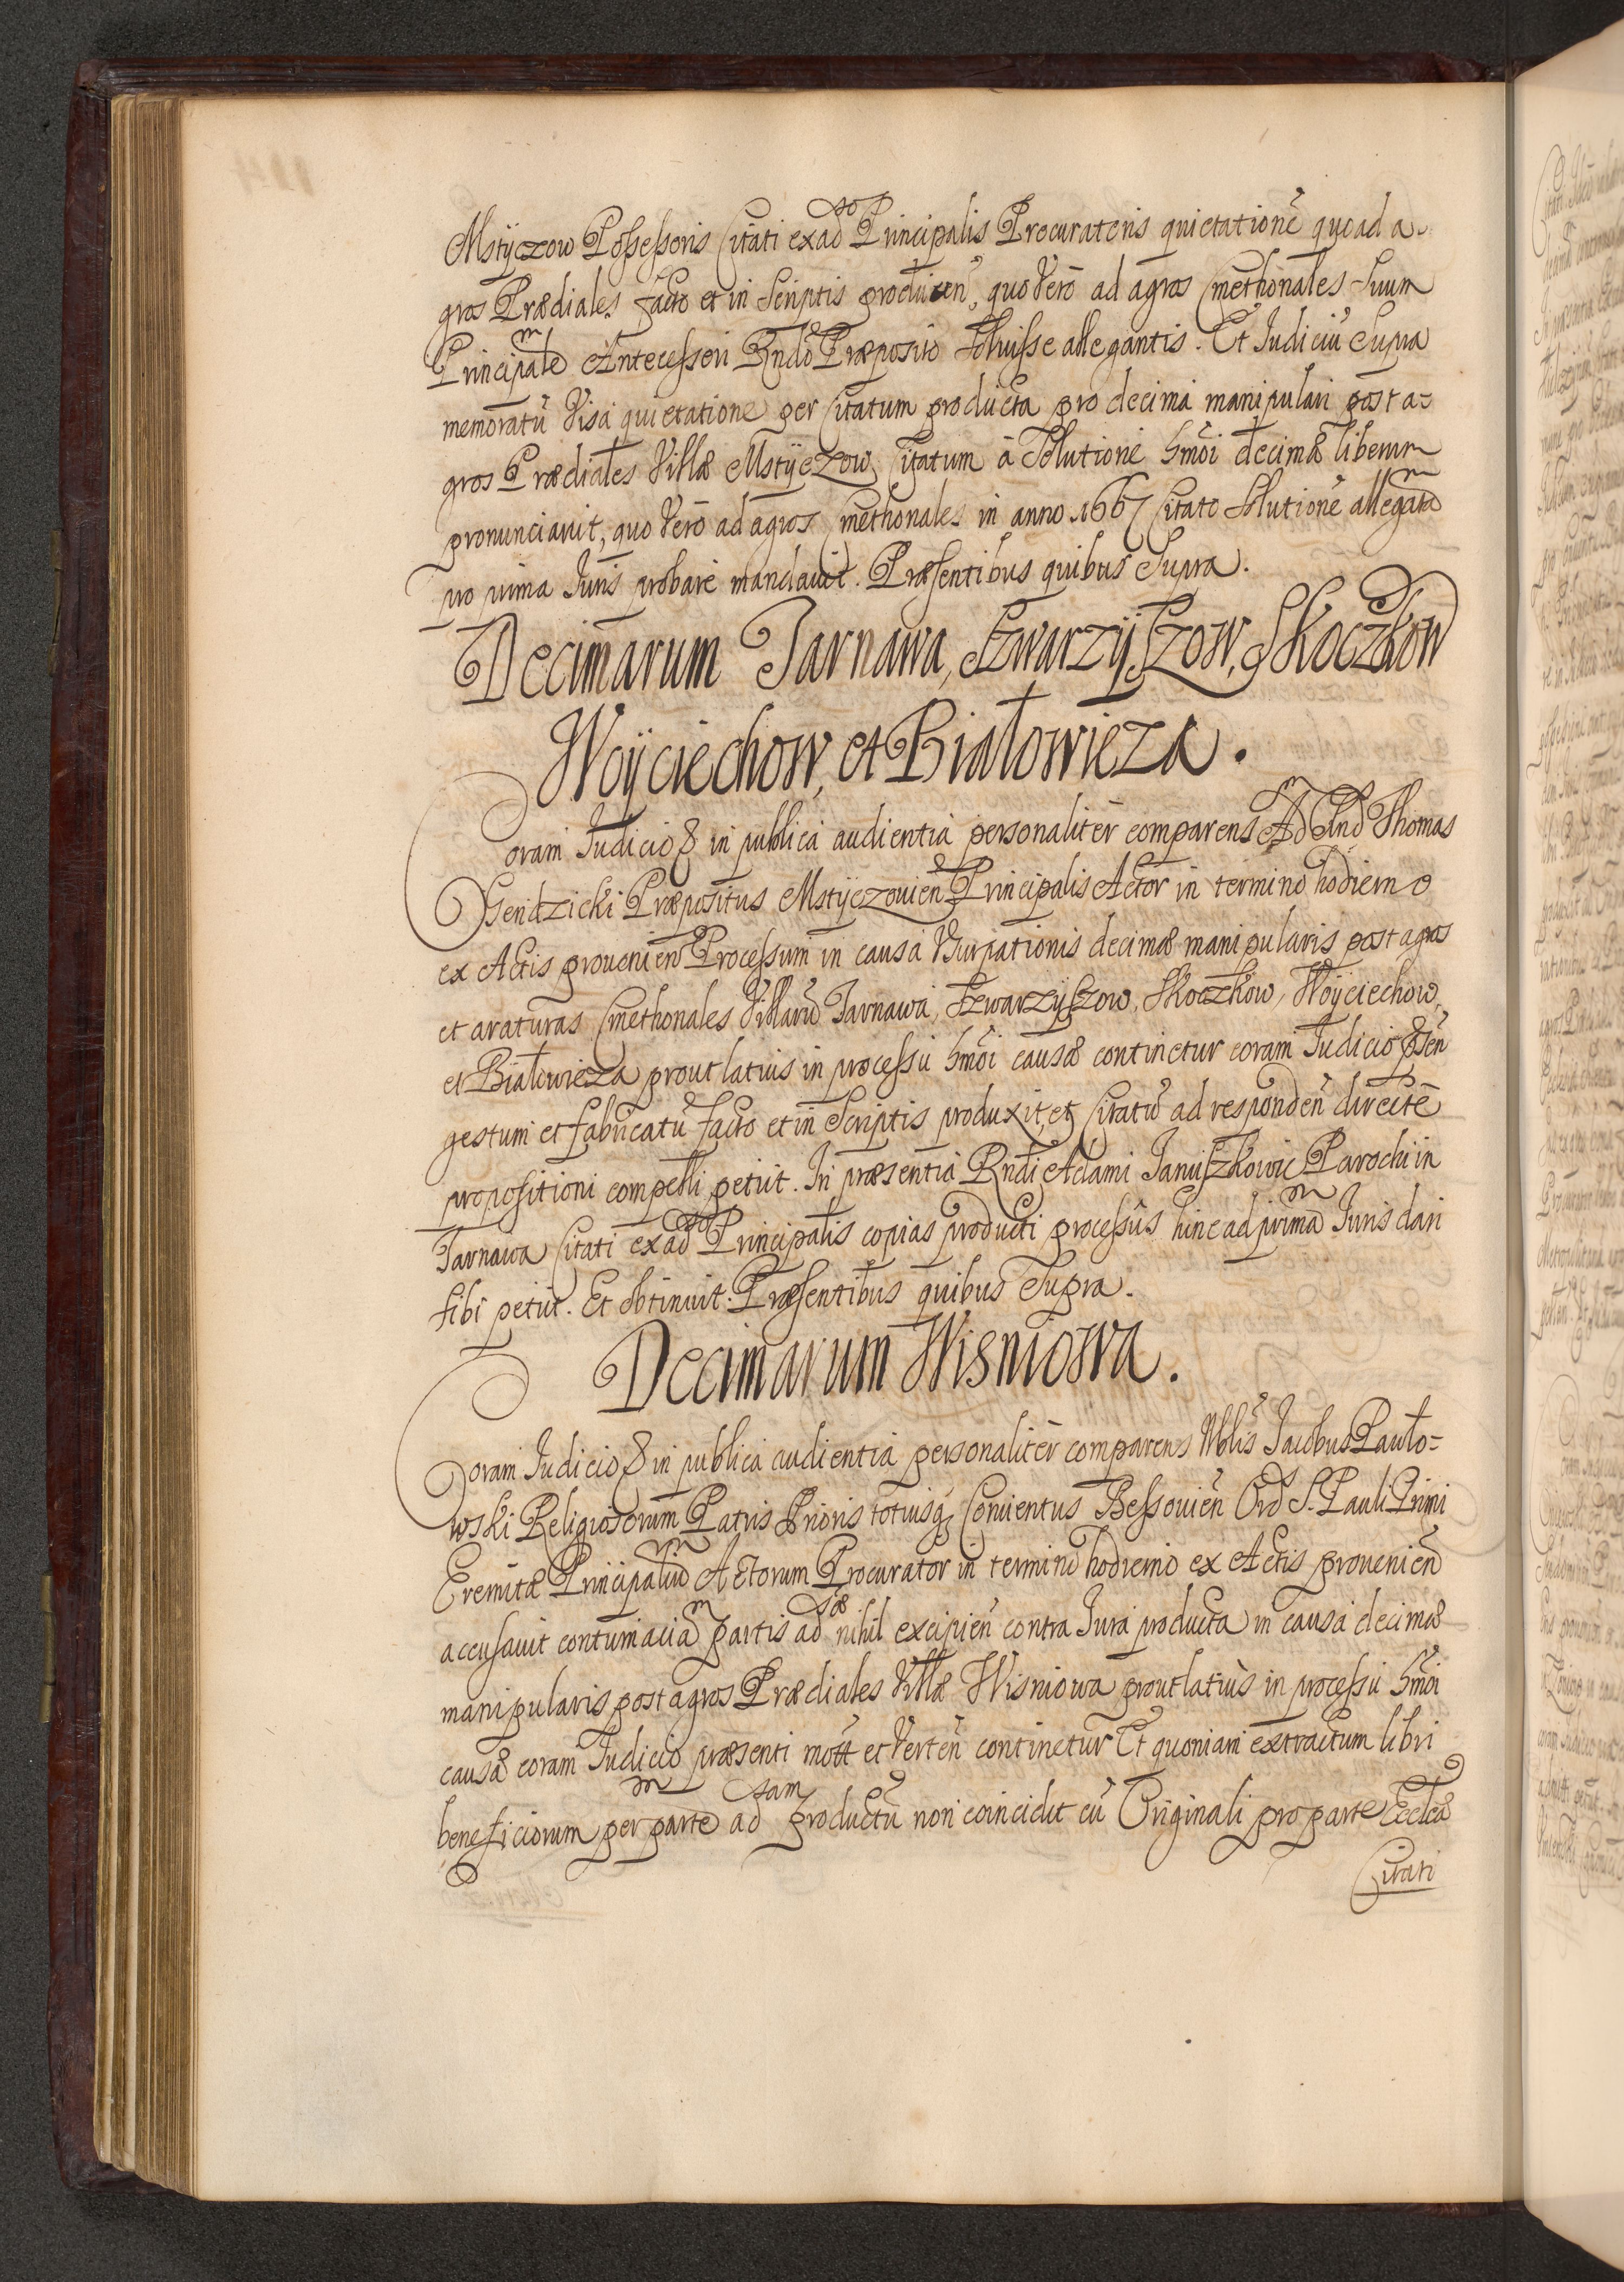 Mstyczow Possessoris Citati ex adso Principalis Procuratoris quietationē quoad a-
gros Prædiales facto et in Scriptis producen̄, quo Vero ad agros Cmethonales Suum
Principalem Antecessori Rndo Præposito Soluisse allegantis. Et Iudiciū Supra
memoratū Visa quietatione per Citatum producta pro decima manipulari post a=
gros Prædiales Villæ Mstyczow, Citatum à Solutione hmōi decimæ liberum
pronunciavit, quo Vero ad agros Cmethonales in anno 1667 Citato Solutionē allegatam
pro prima Iuris probare mandavit. Præsentibus quibus Supra.
Decimarum Tarnawa, Szwarzyszow, Skoczkow
Woyciechow, et Białowieza.
Coram Iudicio & in publica audientia personaliter comparens Adm Rnd Thomas
Gendzicki Præpositus Mstyczovien̄ Principalis Actor in termino hodierno
ex Actis provenien̄ Processum in causa Vsurpationis decimæ manipularis post agros
et araturas Cmethonales Villarū Tarnawa, Szwarzyszow, Skoczkow, Woyciechow,
et Białowieza prout latius in processu hmōi causæ continetur coram Iudicio præsen̄
gestum et fabricatū facto et in Scriptis produxit, et Citatū ad responden̄ directe
propositioni compelli petiit. In præsentia Rndi Adami Januszkowic Parochi in
Tarnawa Citati ex adso Principalis copias producti processus hinc ad primam Iuris dari
sibi petiit. Et obtinuit. Præsentibus quibus Supra.
Decimarum Wisniowa.
Coram Iudicio & in publica audientia personaliter comparens Nblis Jacobus Pawło=
wski Religiosorum Patris Prioris totiusq; Conventus Bessovien̄ Ord S. Pauli Primi
Eremitæ Principalium Actorum Procurator in termino hodierno ex Actis provenien̄
accusavit contumaciam partis adsæ nihil excipien̄ contra Iura producta in causa decimæ
manipularis post agros Prædiales Villæ Wisniowa prout latius in processu hmōi
causæ coram Iudicio præsenti mott et Verten̄ continetur Et quoniam extractum libri
beneficiorum per partem adsam productū non coincidit cū Originali pro parte Eccliæ
Citati